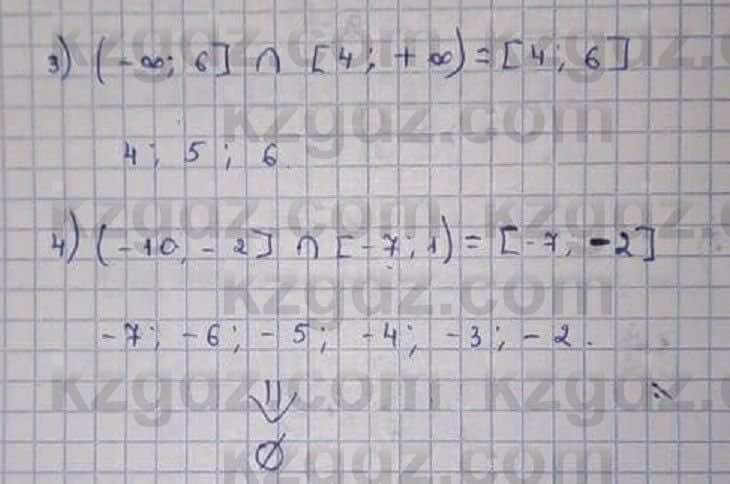 3) (-∞; 6] ∩ [4; +∞) = [4; 6]
4; 5; 6.
4) (-10, -2] ∩ [-7; 1) = [-7, -2]
-7; -6; -5; -4; -3; -2.
⇓
∅
kzgdz.com
kzgdz.com
kzgdz.com
kzgdz.com
kzgdz.com
kzgdz.com
kzgdz.com
kzgdz.com
kzgdz.com